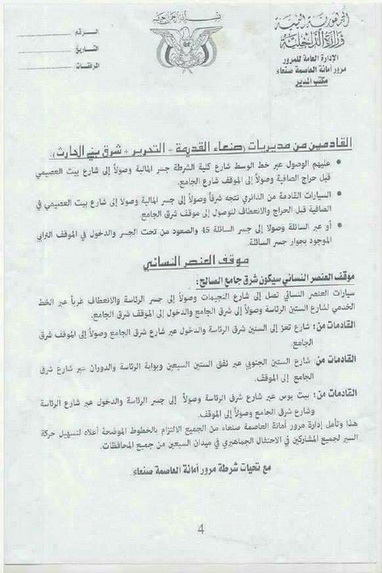 بسم الله الرحمن الرحيم
الجمهورية اليمنية
وزارة الداخلية
الإدارة العامة للمرور
مرور أمانة العاصمة صنعاء
مكتب المدير
الرقم
التاريخ
المرفقات
القادمين من مديريات (صنعاء القديمة - التحرير - شرق بني الحارث):
عليهم الوصول عبر خط الوسط شارع كلية الشرطة جسر المالية وصولاً إلى شارع بيت العصيمي
قبل حراج الصافية وصولاً إلى الموقف شارع الجامع.
السيارات القادمة من الدائري تتجه شرقاً وصولاً إلى جسر المالية وصولا إلى شارع بيت العصيمي في
الصافية قبل الحراج والانعطاف للوصول إلى موقف شرق الجامع.
أو عبر السائلة وصولا إلى جسر السائلة 45 والصعود من تحت الجسر والدخول في الموقف الترابي
الموجود بجوار جسر السائلة.
موقف العنصر النسائي
موقف العنصر النسائي سيكون شرق جامع الصالح:
سيارات العنصر النسائي تصل إلى شارع النجيمات وصولاً إلى جسر الرئاسة والانعطاف غرباً عبر الخط
الخدمي لشارع الستين الرئاسة وصولاً إلى شارع الجامع والدخول إلى الموقف شرق الجامع.
القادمات من: شارع تعز إلى الستين شرق الرئاسة والدخول عبر شارع شرق الجامع وصولاً إلى الموقف شرق
الجامع.
القادمات من: شارع الستين الجنوبي عبر نفق الستين السبعين وبوابة الرئاسة والدوران عبر شارع شرق
الجامع إلى الموقف.
القادمات من: بيت بوس عبر شارع شرق الرئاسة وصولاً إلى جسر الرئاسة والدخول عبر شارع الرئاسة
وشارع شرق الجامع وصولاً إلى الموقف.
هذا وتأمل إدارة مرور أمانة العاصمة صنعاء من الجميع الالتزام بالخطوط الموضحة أعلاه لتسهيل حركة
السير لجميع المشاركين في الاحتفال الجماهيري في ميدان السبعين من جميع المحافظات.
مع تحيات شرطة مرور أمانة العاصمة صنعاء.
4